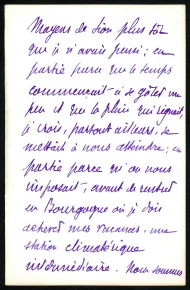 Mayens de Sion plus tôt
que je n'avais pensé ; en
partie parce que le temps
commençait à se gâter un
peu et que la pluie qui régnait,
je crois, partout ailleurs, se
mettait à nous atteindre ; en
partie parce qu'on nous
imposait, avant de rentrer
en Bourgogne où je dois
achever mes vacances, une
station climatérique
intermédiaire. Nous sommes